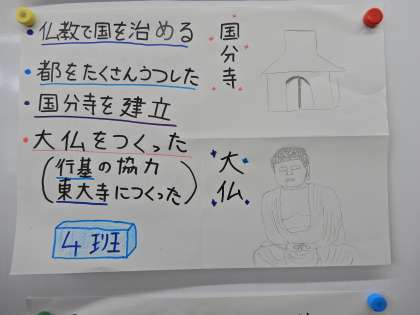 仏教で国を治める
都をたくさんうつした
国分寺を建立
大仏をつくった
(行基の協力
東大寺につくった)
4班
国分寺
大仏